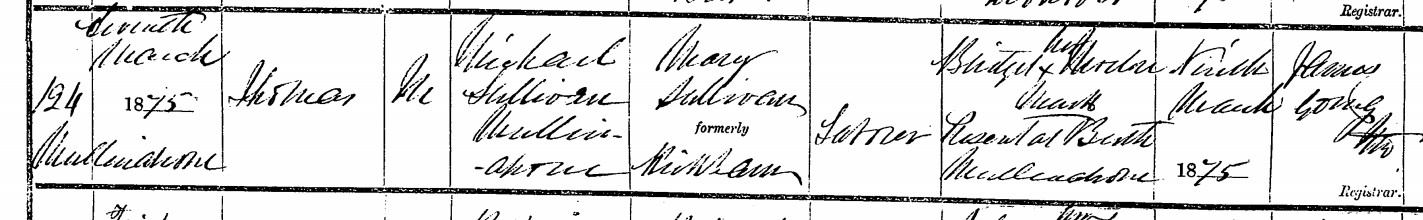 Registrar.
124
Mullinahone
Seventh
March
1875
Thomas
M
Michael
Sullivan
Mullin-
-ahone
Mary
Sullivan
formerly
Kickham
Laborer
Bridget
her
x
mark
Present at Birth
Mullinahone
Ninth
March
1875
James
Going
Registrar.